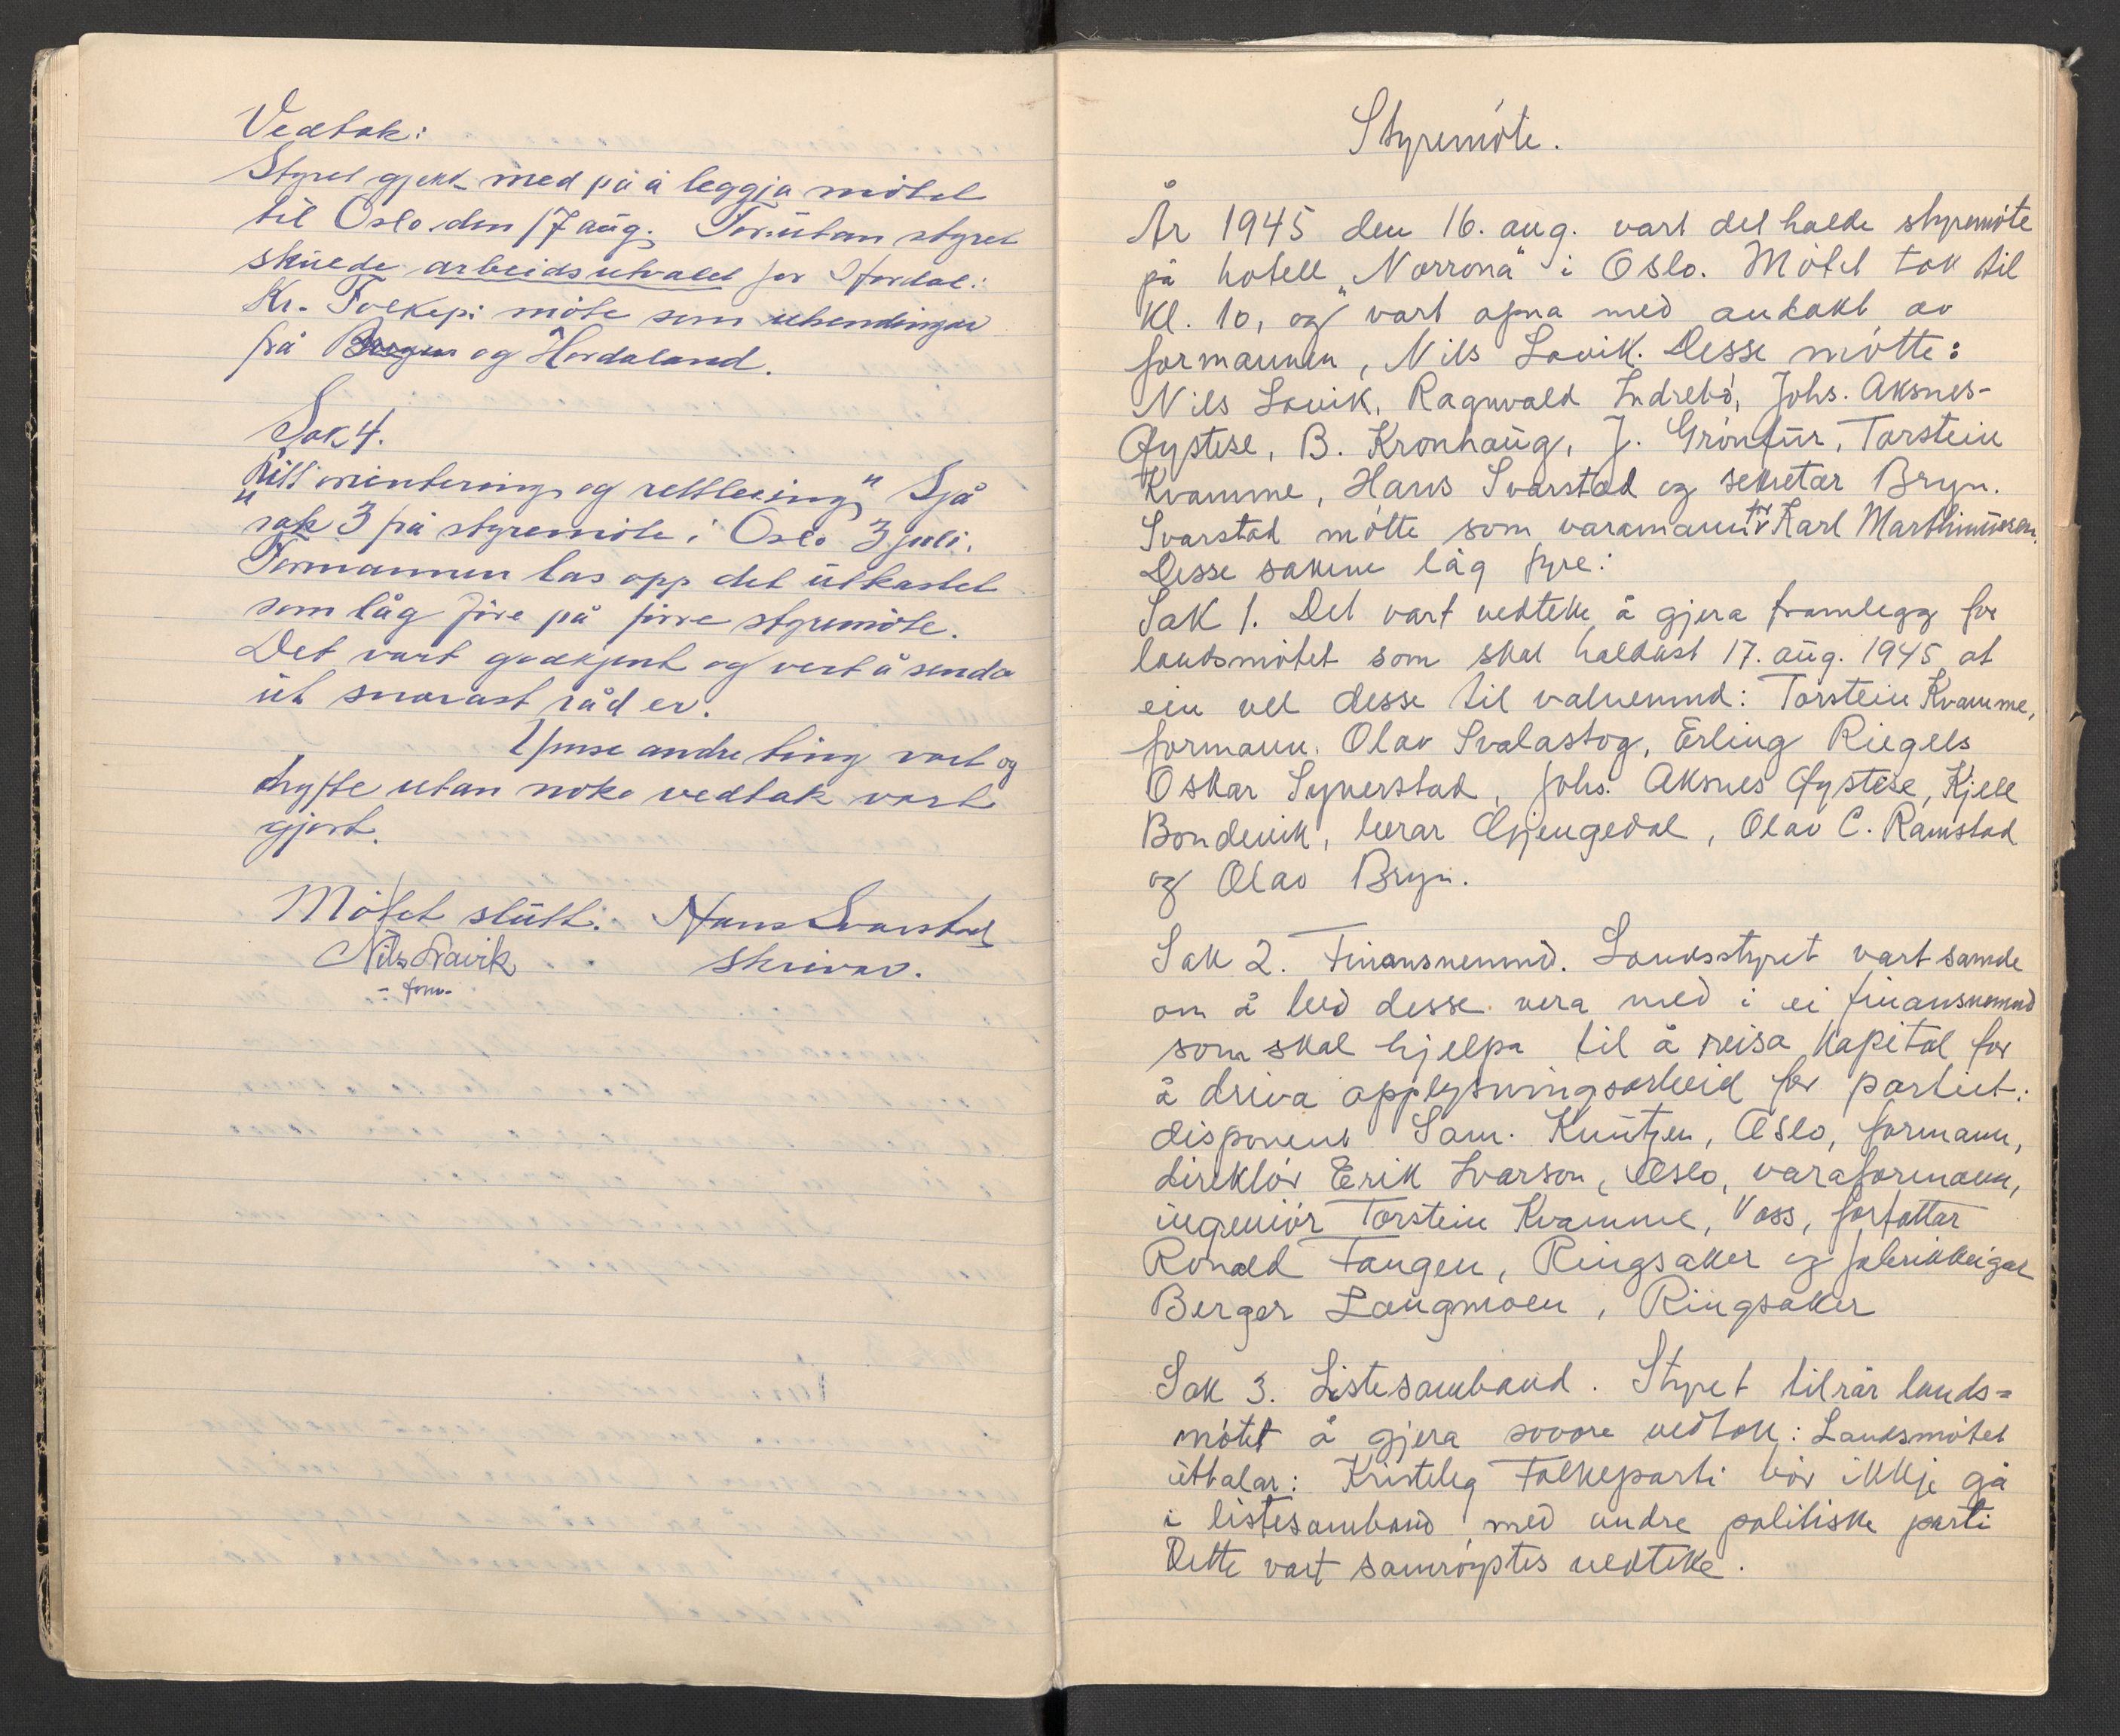 Vedtak:
Styret gjekk med på å leggja mötet
til Oslo den 17 aug. Forutan styret
skulde arbeidsutvalet for Hordal.
Kr. Folkep. möte som utsendingar
frå Bergen og Hordaland.
Sak 4.
"Litt orientering og rettleiing" Sjå
sak 3 på styremöte i Oslo 3 juli.
Formannen las opp det utkastet
som låg före på förre styremöte.
Det vart godkjent og vert å senda
ut snarast råd er.
Ymse andre ting vart og
dryfte utan noko vedtak vart
gjort.
Mötet slutt. Hans Svarstad
Nils Lavik skrivar.
- form -
Styremöte.
År 1945 den 16. aug. vart det halde styremöte
på hotell "Norrona" i Oslo. Mötet tok til
Kl. 10, og vart opna med andakt av
formannen, Nils Lavik. Desse mötte:
Nils Lavik, Ragnvald Indrebö, Johs. Aksnes-
Øystese, B. Kronhaug, J. Grönfur, Torstein
Kvamme, Hans Svarstad og sekretær Bryn.
Svarstad mötte som varamann for Karl Marthinussen.
Desse sakene låg fyre:
Sak 1. Det vart vedteke å gjera framlegg for
landsmötet som skal haldast 17. aug. 1945 at
ein vel desse til valnemnd: Torstein Kvamme,
formann. Olav Svalastog, Erling Riegels
Oskar Syverstad, Johs. Aksnes Øystese, Kjell
Bondevik, lærar Gjengedal, Olav C. Ramstad
og Olav Bryn.
Sak 2. Finansnemnd. Landsstyret vart samde
om å beð desse vera med i ei finansnemnd
som skal hjelpa til å reisa kapital for
å driva opplysningsarbeid for partiet:
disponent Sam. Knutzen, Oslo, formann,
direktör Erik Ivarson, Oslo, varaformann,
ingeniör Torstein Kvamme, Voss, forfattar
Ronald Fangen, Ringsaker og fabrikkeigar
Berger Langmoen, Ringsaker
Sak 3. Listesamband. Styret tilrår lands=
mötet å gjera sovore vedtak: Landsmötet
uttalar: Kristeleg Folkeparti bör ikkje gå
i listesamband med andre politiske parti
Dette vart samröystes vedteke.